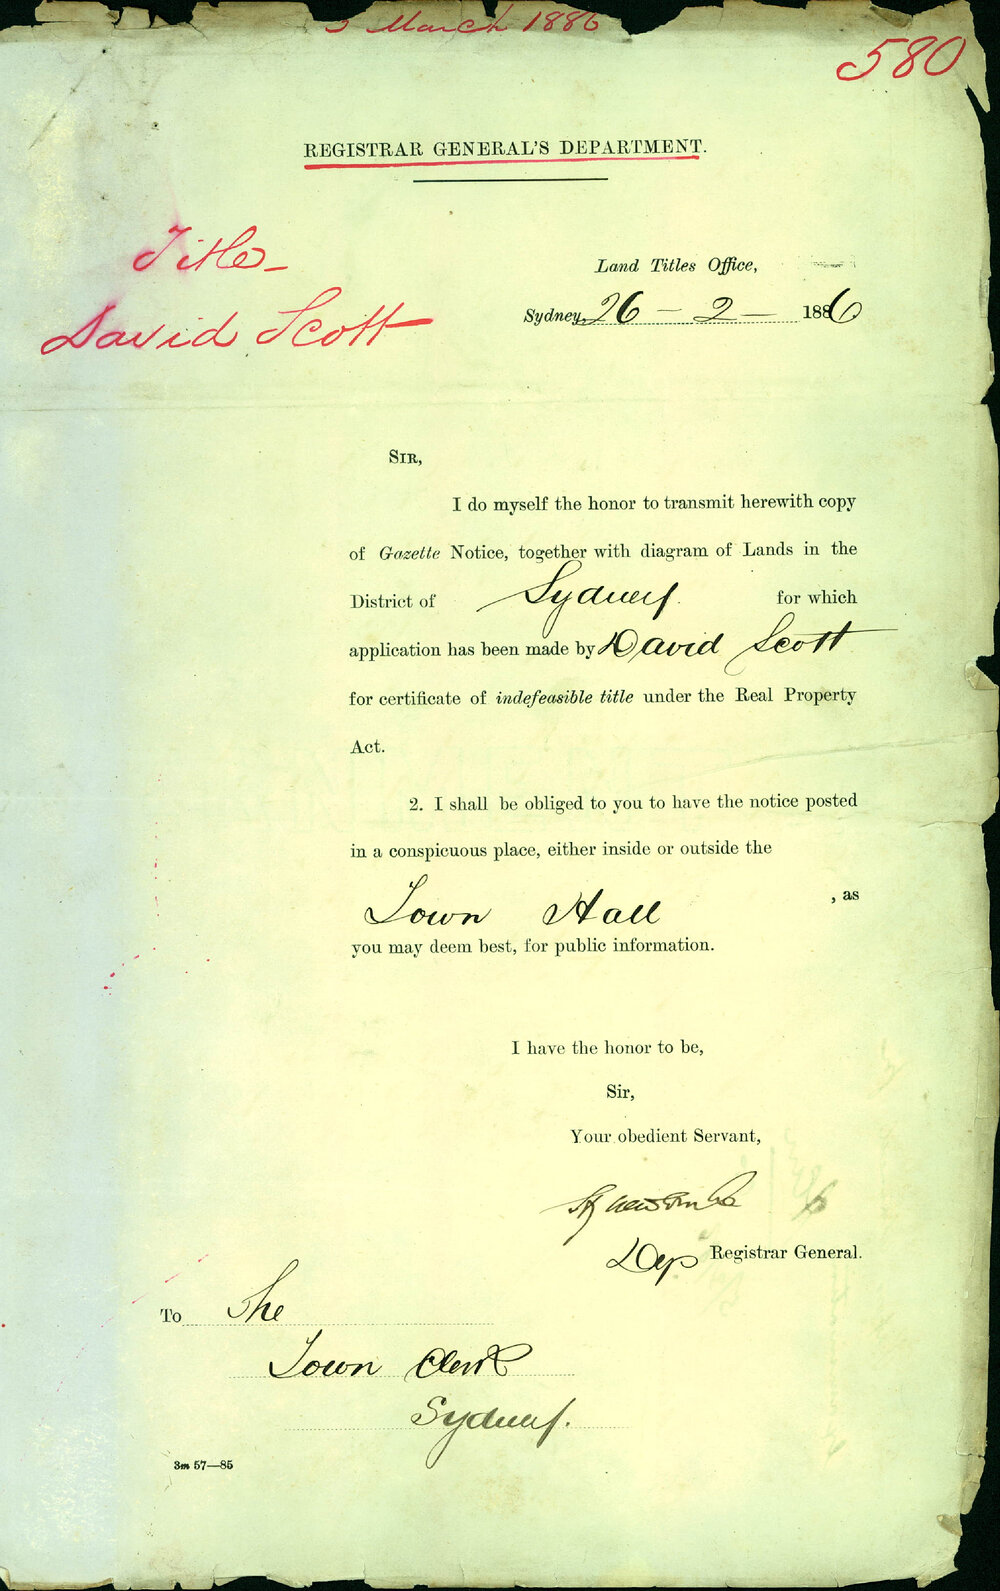 3 March 1886
580
REGISTRAR GENERAL'S DEPARTMENT.
Title-
David Scott
Land Titles Office,
Sydney, 26 - 2 - 1886
SIR,
I do myself the honor to transmit herewith copy
of Gazette Notice, together with diagram of Lands in the
District of Sydney for which
application has been made by David Scott
for certificate of indefeasible title under the Real Property
Act.
2. I shall be obliged to you to have the notice posted
in a conspicuous place, either inside or outside the
Town Hall , as
you may deem best, for public information.
I have the honor to be,
Sir,
Your obedient Servant,
Dep Registrar General.
To The
Town Clerk
Sydney.
3m 57—85